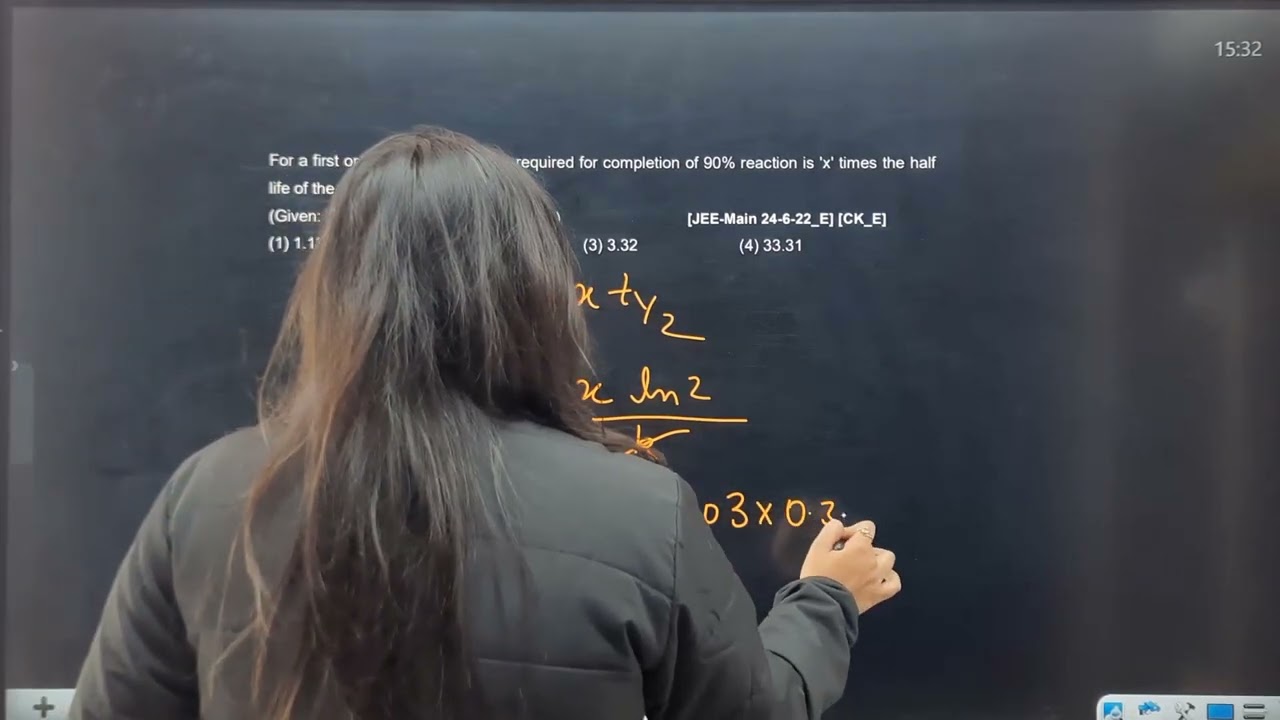 15:32
For a first required for completion of 90% reaction is 'x' times the half
life of the
(Given: [JEE-Main 24-6-22_E] [CK_E]
(1) (3) 3.32 (4) 33.31
x t1/2
x ln 2
03 x 0.3